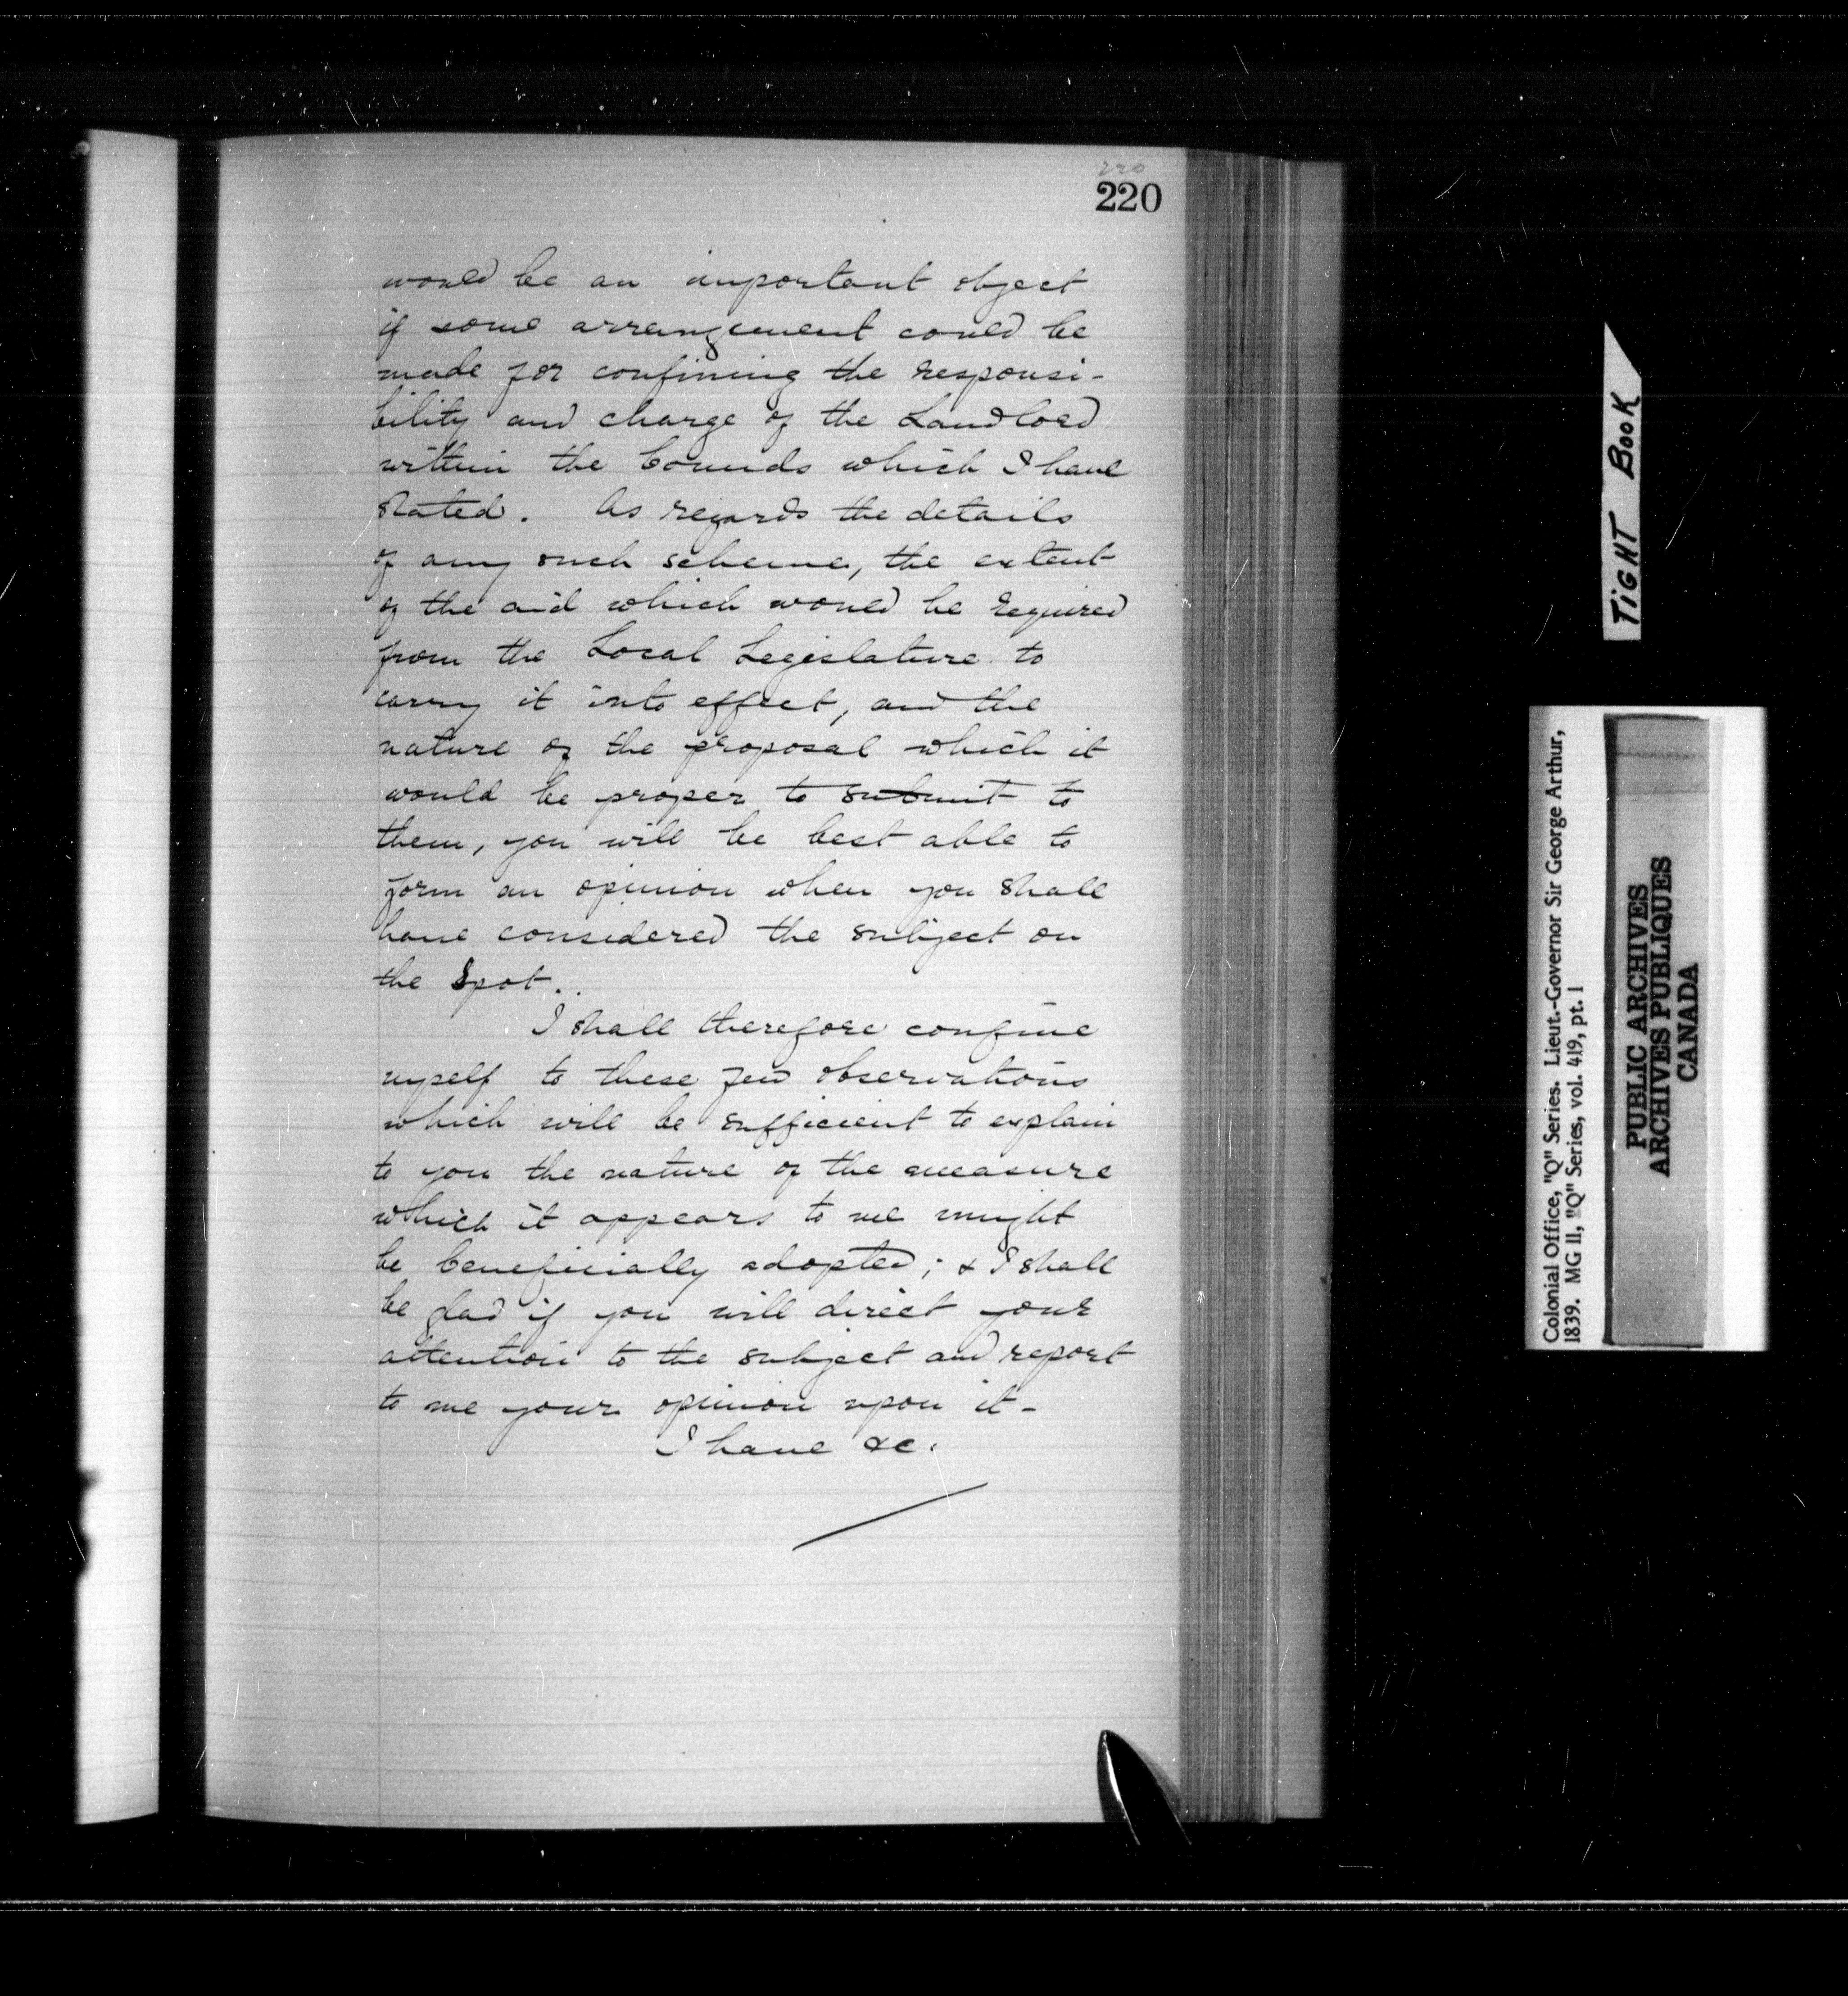 220
220
would be an important object
if some arrangement could be
made for confining the responsi-
bility and charge of the Landlord
within the bounds which I have
stated. As regards the details
of any such scheme, the extent
of the aid which would be required
from the Local Legislature to
carry it into effect, and the
nature of the proposal which it
would be proper to submit to
them, you will be best able to
form an opinion when you shall
have considered the subject on
the spot.
I shall therefore confine
myself to these few observations
which will be sufficient to explain
to you the nature of the measure
which it appears to me might
be beneficially adopted; & I shall
be glad if you will direct your
attention to the subject and report
to me your opinion upon it -
I have &c.
TIGHT BOOK
Colonial Office, "Q" Series. Lieut.-Governor Sir George Arthur,
1839. MG 11, "Q" Series, vol. 419, pt. 1
PUBLIC ARCHIVES
ARCHIVES PUBLIQUES
CANADA